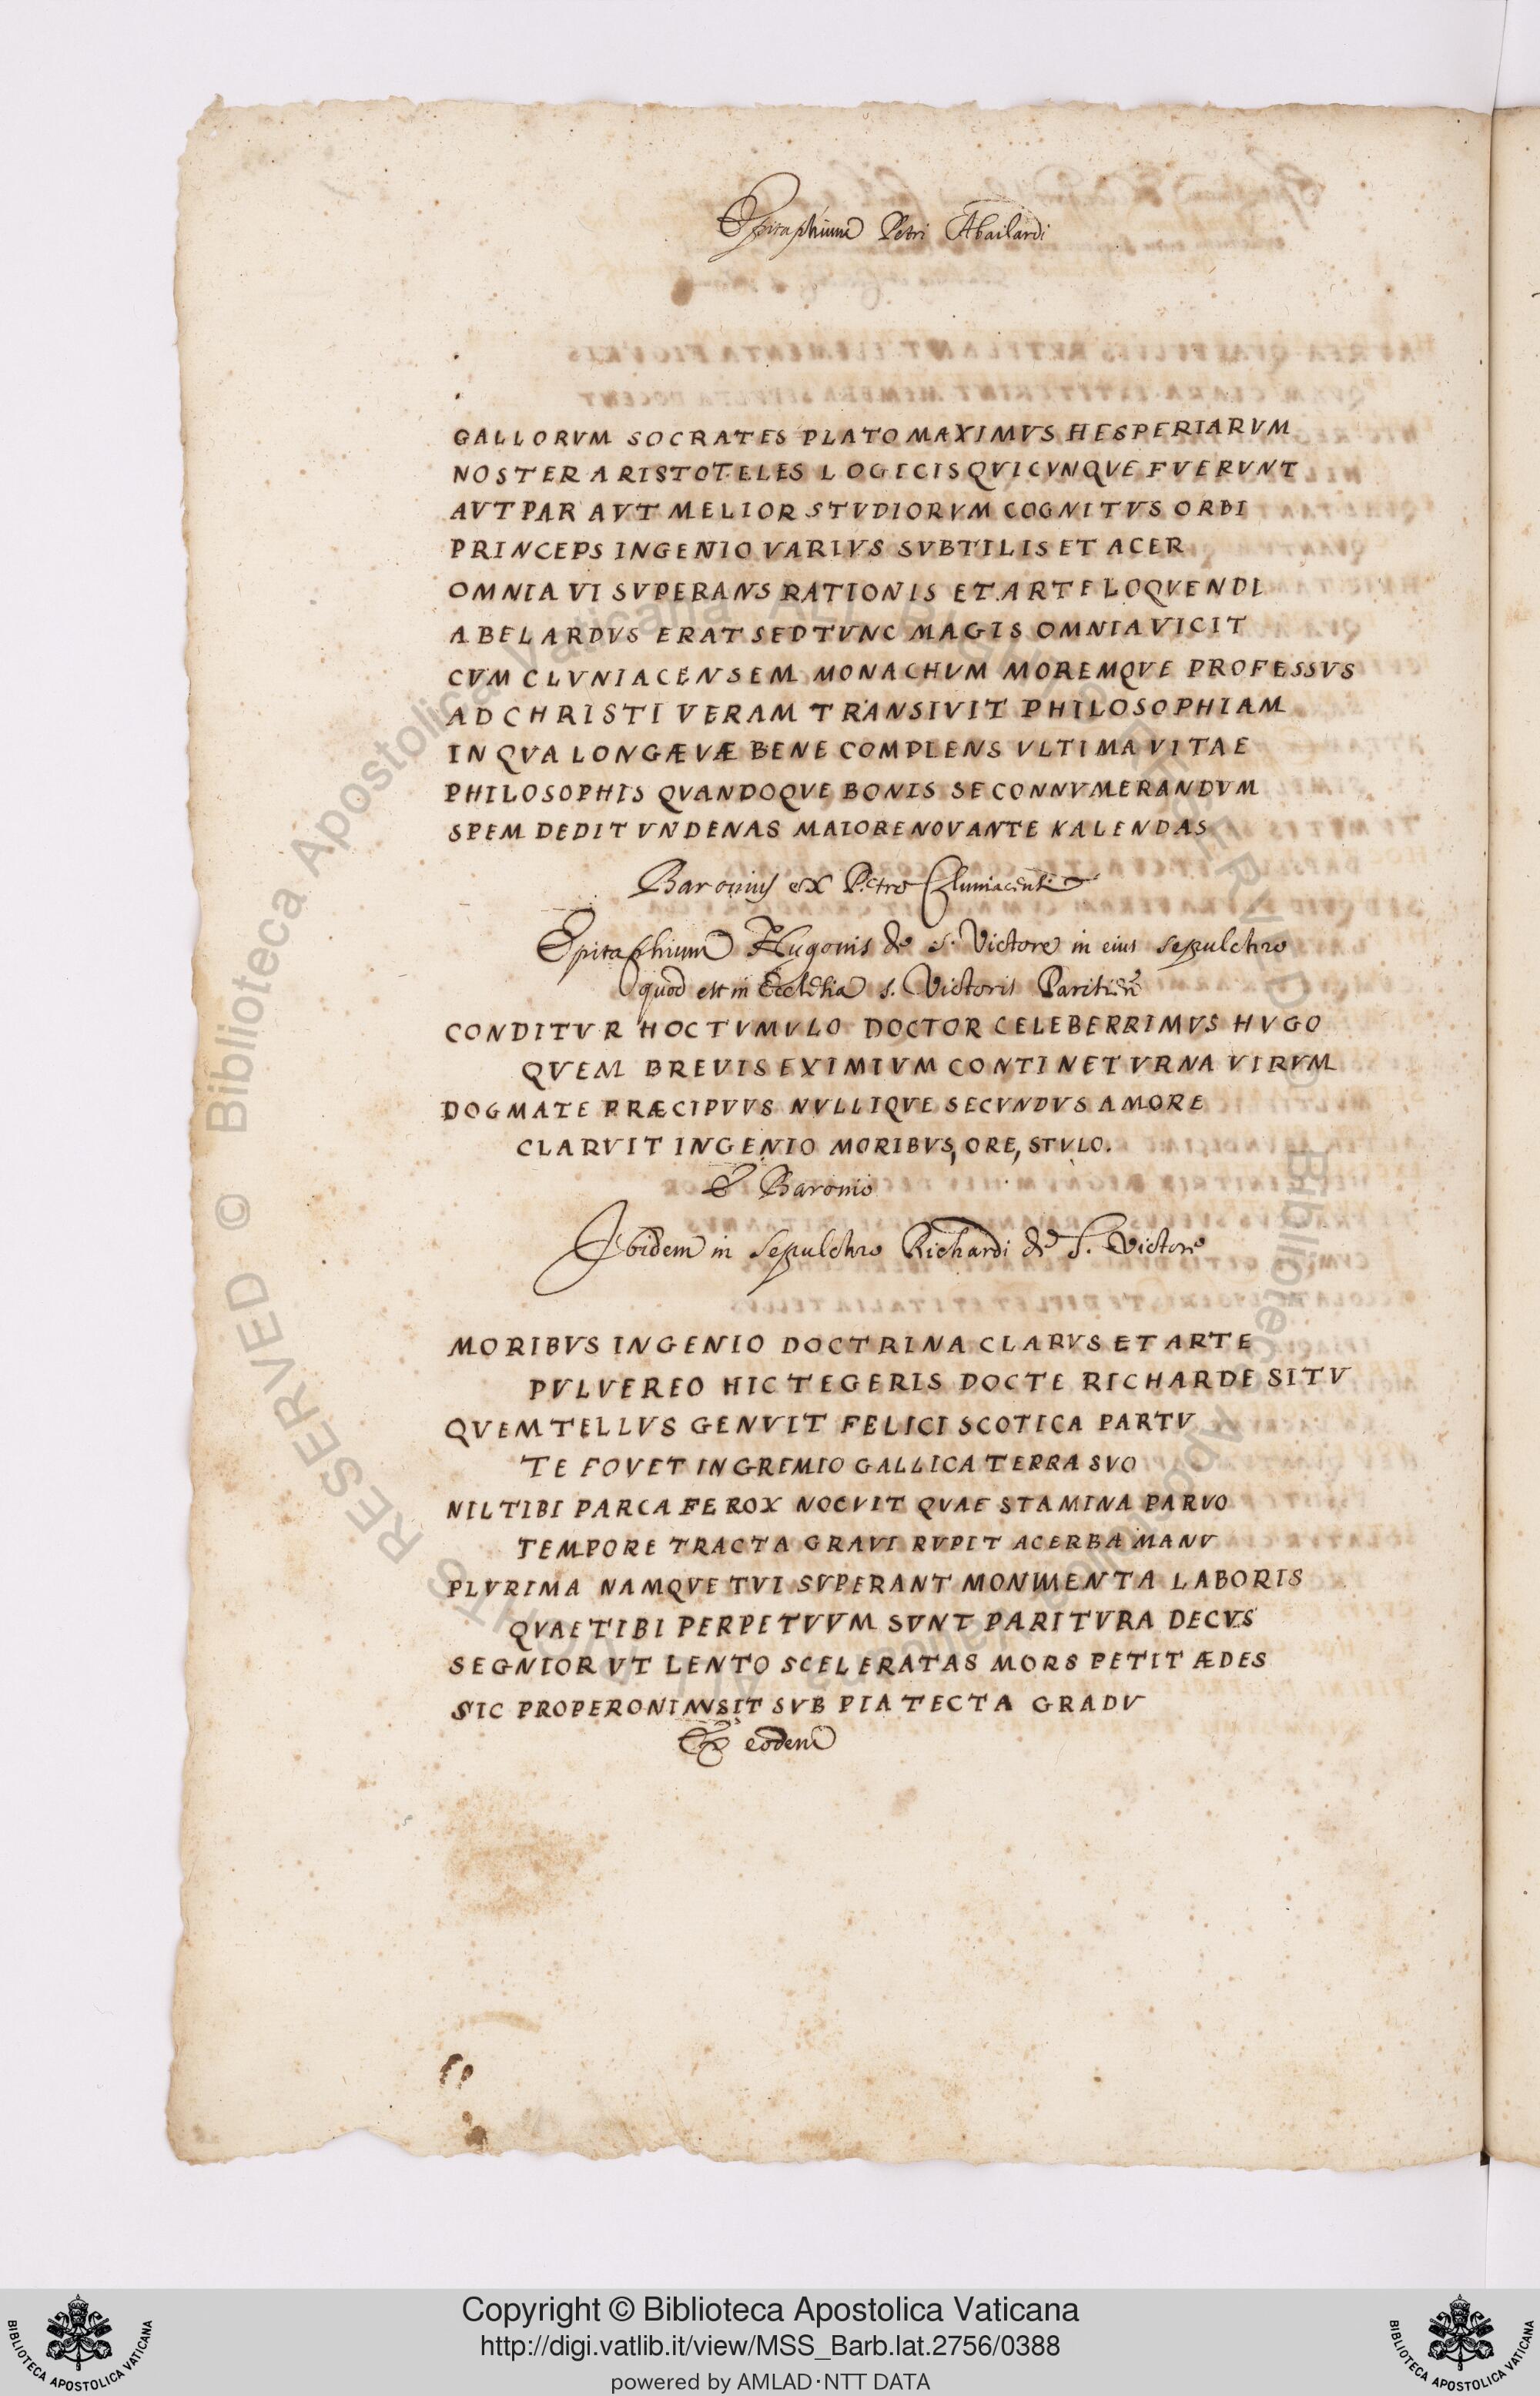 Epitaphium Petri Abailardi
GALLORVM SOCRATES PLATO MAXIMVS HESPERIARVM
NOSTER ARISTOTELES LOGICIS QVICVNQVE FVERVNT
AVT PAR AVT MELIOR STVDIORVM COGNITVS ORBI
PRINCEPS INGENIO VARIVS SVBTILIS ET ACER
OMNIA VI SVPERANS RATIONIS ET ARTE LOQVENDI
ABELARDVS ERAT SED TVNC MAGIS OMNIA VICIT
CVM CLVNIACENSEM MONACHVM MOREMQVE PROFESSVS
AD CHRISTI VERAM TRANSIVIT PHILOSOPHIAM
IN QVA LONGÆVÆ BENE COMPLENS VLTIMA VITAE
PHILOSOPHIS QVANDOQVE BONIS SE CONNVMERANDVM
SPEM DEDIT VNDENAS MAIORE NOVANTE KALENDAS
Baronius ex Petro Cluniacensi
Epitaphium Hugonis de S. Victore in eius sepulchro
quod est in Ecclesia S. Victoris Parisien
CONDITVR HOC TVMVLO DOCTOR CELEBERRIMVS HVGO
QVEM BREVIS EXIMIVM CONTINET VRNA VIRVM
DOGMATE PRÆCIPVVS NVLLIQVE SECVNDVS AMORE
CLARVIT INGENIO MORIBVS, ORE, STVLO.
E Baronio
Ibidem in sepulchro Richardi de S. Victore
MORIBVS INGENIO DOCTRINA CLARVS ET ARTE
PVLVEREO HIC TEGERIS DOCTE RICHARDE SITV
QVEM TELLVS GENVIT FELICI SCOTICA PARTV
TE FOVET IN GREMIO GALLICA TERRA SVO
NIL TIBI PARCA FEROX NOCVIT QVAE STAMINA PARVO
TEMPORE TRACTA GRAVI RVPIT ACERBA MANV
PLVRIMA NAMQVE TVI SVPERANT MONVMENTA LABORIS
QVAE TIBI PERPETVVM SVNT PARITVRA DECVS
SEGNIOR VT LENTO SCELERATAS MORS PETIT ÆDES
SIC PROPERO NIMIS IT SVB PIA TECTA GRADV
Ex eodem
Copyright © Biblioteca Apostolica Vaticana
http://digi.vatlib.it/view/MSS_Barb.lat.2756/0388
powered by AMLAD·NTT DATA
BIBLIOTECA APOSTOLICA VATICANA
BIBLIOTECA APOSTOLICA VATICANA